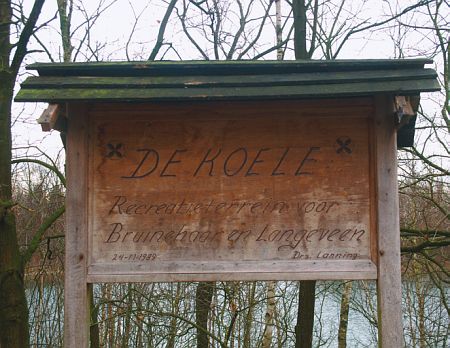 DE KOELE
Recreatieterrein voor
Bruinehaar en Langeveen
24-11-1989 Drs. Lanning